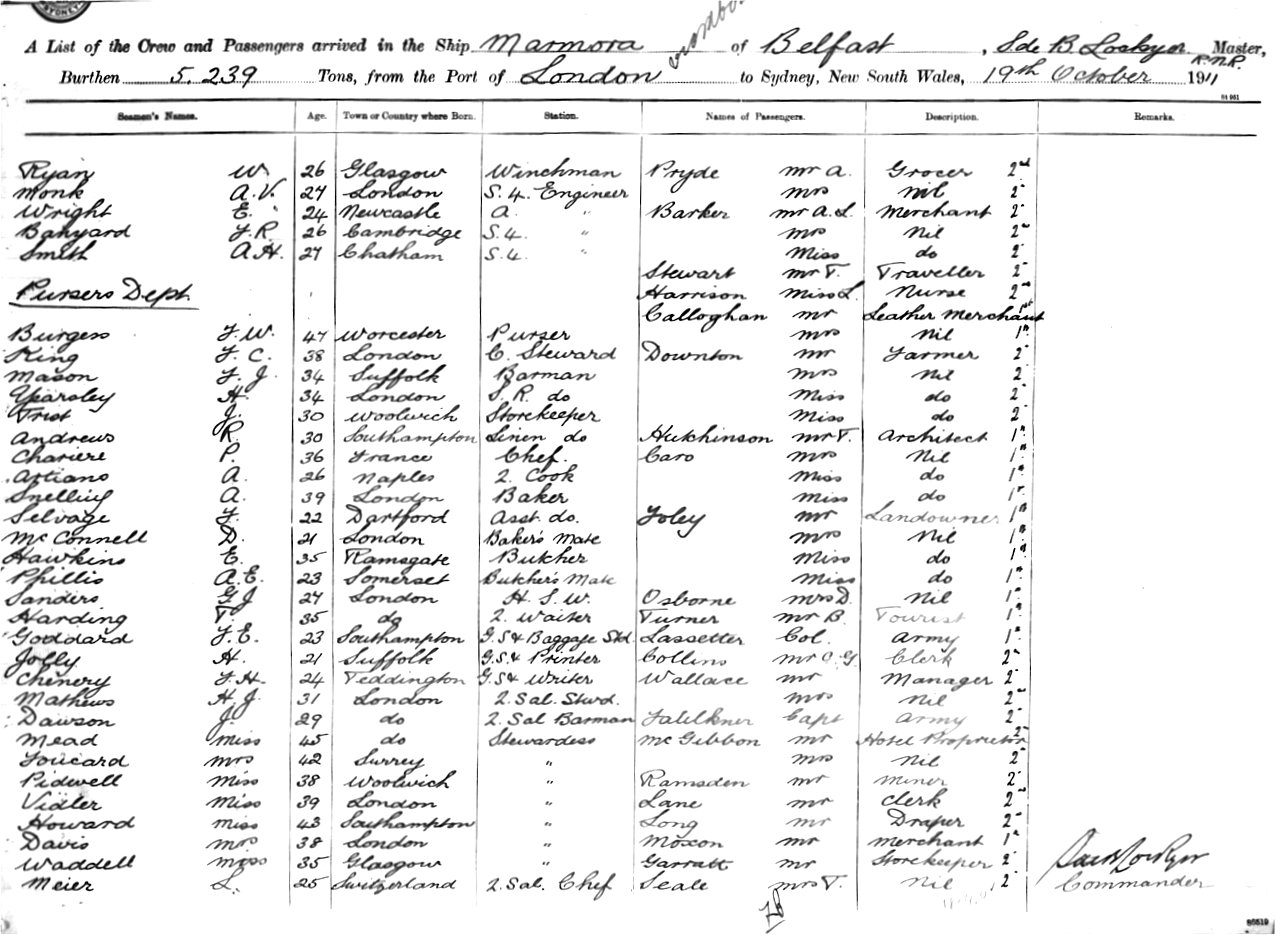 SYDNEY
A List of the Crew and Passengers arrived in the Ship Marmora of Belfast, S de B Lockyer Master,
R.N.R.
Burthen 5,239 Tons, from the Port of London to Sydney, New South Wales, 19th October 1911
Seamen's Names. Age. Town or Country where Born. Station. Names of Passengers. Description. Remarks.
Ryan W. 26 Glasgow Winchman Pryde Mr A. Grocer 2nd
Monk A.V. 27 London S. 4. Engineer Mrs Nil 2"
Wright E. 24 Newcastle A. " Barker Mr A.L. Merchant 2"
Banyard F.R. 26 Cambridge S.4. " Mrs Nil 2nd
Smith A.H. 27 Chatham S.4. " Miss do 2"
Stewart Mr T. Traveller 2"
Pursers Dept. Harrison Miss L. Nurse 2nd
Calloghan Mr Leather Merchant 1st
Burgess F.W. 47 Worcester Purser Mrs Nil 1"
King F.C. 38 London C. Steward Downton Mr Farmer 2"
Mason F.J. 34 Suffolk Barman Mrs Nil 2"
Yearsley H. 34 London S.R. do Miss do 2"
Trist J. 30 Woolwich Storekeeper Miss do 2"
Andrews R. 30 Southampton Linen do Hutchinson Mr T. Architect 1"
Chariere P. 36 France Chef. Caro Mrs Nil 1"
Artiano A. 26 Naples 2. Cook Miss do 1"
Snelling A. 39 London Baker Miss do 1"
Selvage F. 22 Dartford Asst. do. Foley Mr Landowner 1"
McConnell D. 21 London Baker's Mate Mrs Nil 1"
Hawkins E. 35 Ramsgate Butcher Miss do 1"
Phillis A.E. 23 Somerset Butcher's Mate Miss do 1"
Sanders G.J. 27 London H.S.W. Osborne Mrs D. Nil 1"
Harding T. 35 do 2. Waiter Turner Mr B. Tourist 1"
Goddard F.E. 23 Southampton G.S & Baggage Std. Lassetter Col. Army 1"
Jolly H. 21 Suffolk G.S & Printer Collins Mr C.G. Clerk 2"
Chenery F.H. 24 Teddington G.S & Writer Wallace Mr Manager 2"
Mathews H.J. 31 London 2. Sal. Stwd. Mrs Nil 2"
Dawson J. 29 do 2. Sal Barman Faulkner Capt Army 2"
Mead Miss 45 do Stewardess McGibbon Mr Hotel Proprietor 2"
Foucard Mrs 42 Surrey " Mrs Nil 2"
Pidwell Miss 38 Woolwich " Ramsden Mr Miner 2"
Vidler Miss 39 London " Lane Mr Clerk 2"
Howard Miss 43 Southampton " Long Mr Draper 2"
Davis Mrs 38 London " Moxon Mr Merchant 1"
Waddell Mrs 35 Glasgow " Garratt Mr Storekeeper 2"
Meier L. 25 Switzerland 2. Sal. Chef Seale Mrs T. Nil 2" Commander
86519